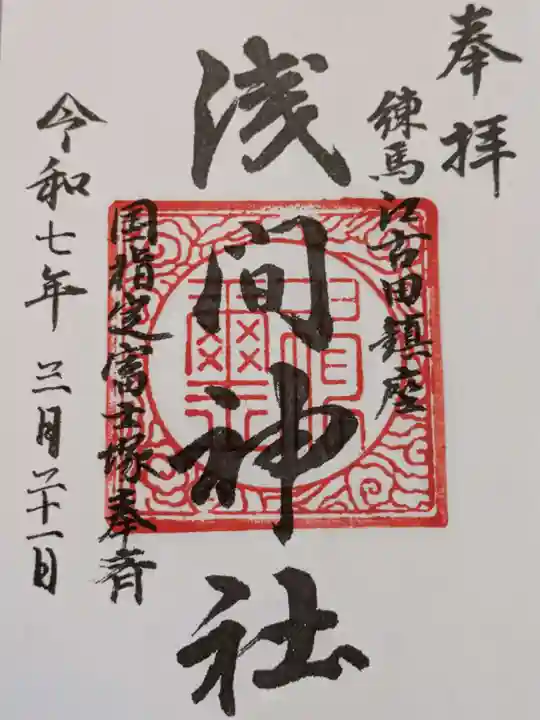 奉拝
練馬江古田鎮座
浅間神社
国指定富士塚奉斉
令和七年 三月二十一日